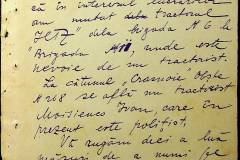 că în interesul lucrărilor
am mutat tractorul
"HTZ" dela brigada No 6 la
"Brigada No 10", unde este
nevoie de un tractorist
La cătunul "Crasnoie Obște
No 268 se află un tractorist
Moisienco Ivan care în
prezent este polițist.
Vă rugăm deci a lua
măsuri de a numi pe